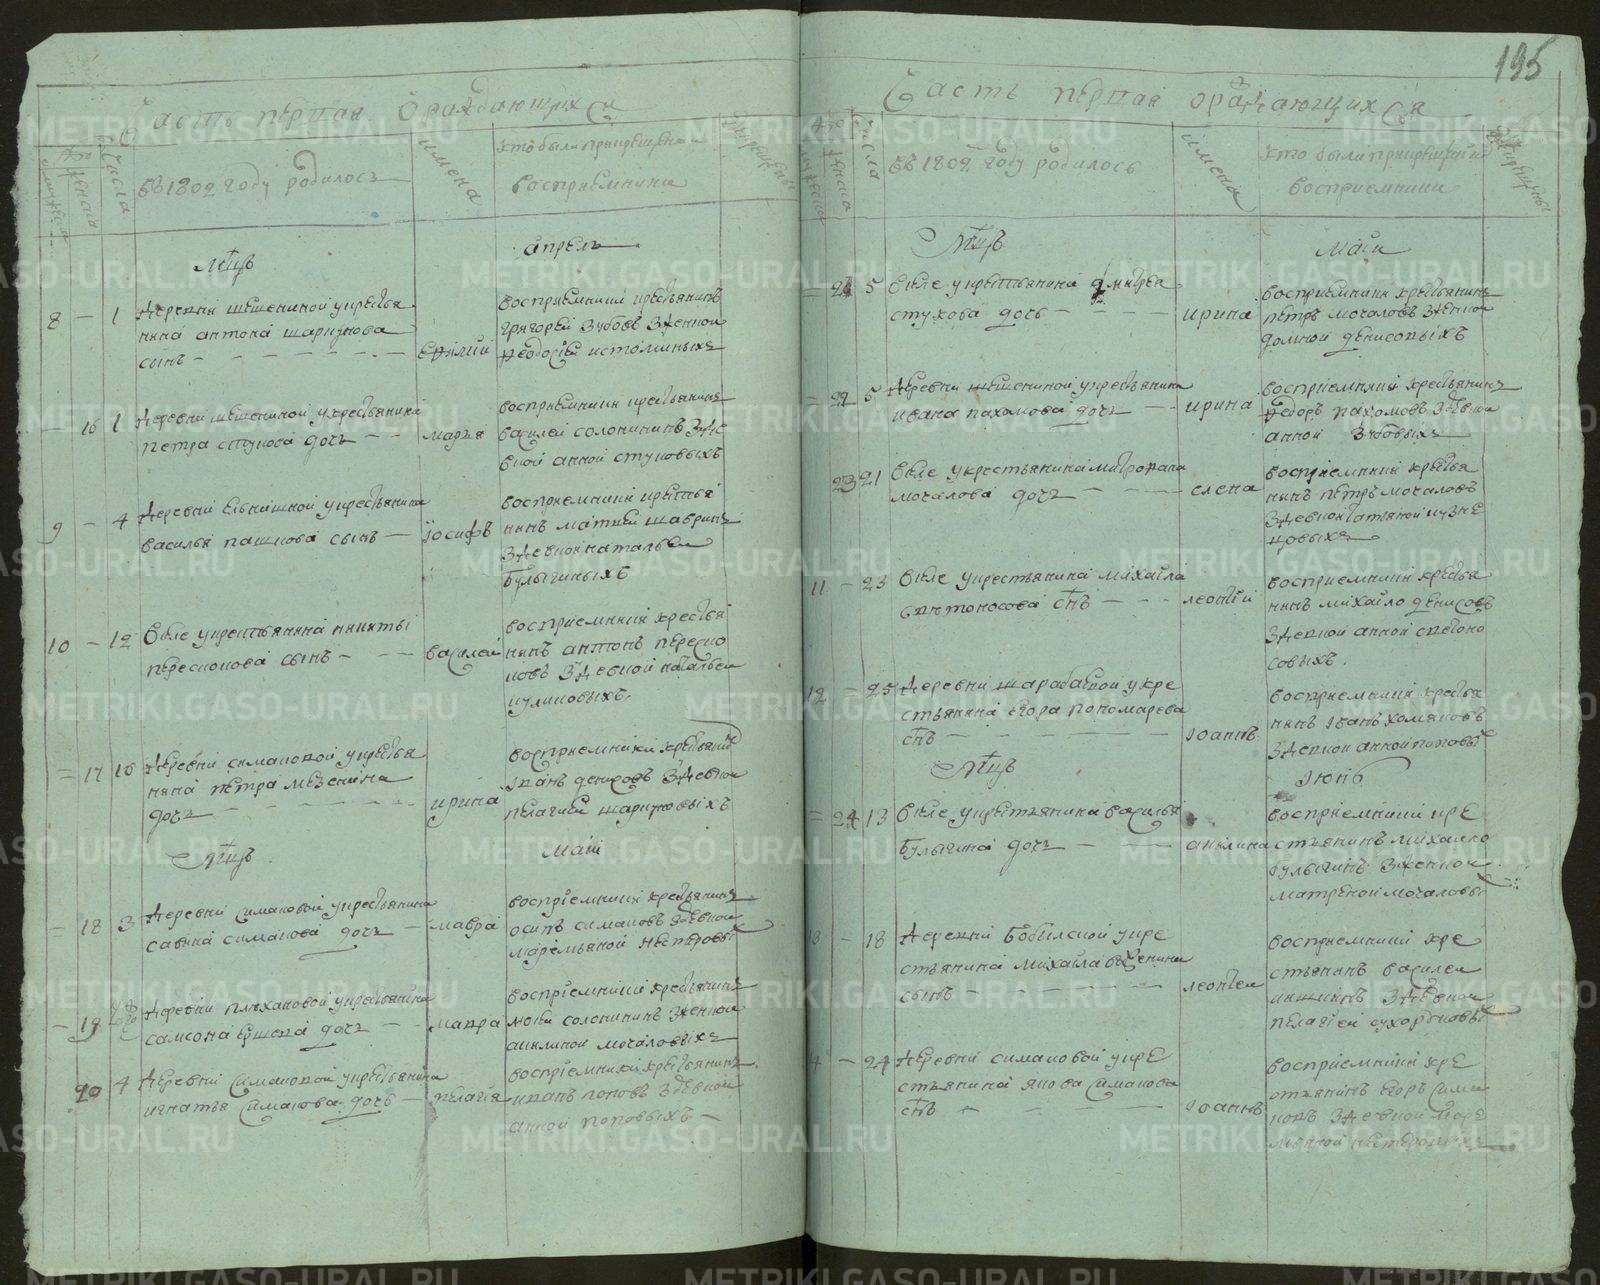 Часть первая ораждающихся
числа
въ 1802 году родилось
имена
кто были приемники
восприемники
Мцъ
апрель
8 — 1 деревни шешениной у крестья
нина антона шаркунова
сынъ — василий
восприемники крестьянинъ
григорей Зубовъ Зженкой
феодосiей истоминыхъ
— 16 1 деревни шешениной у крестьянина
петра стукова дочь — — марья
восприемники крестьянинъ
василей солонининъ Здѣ
вкой анной стуковыхъ
9 — 4 деревни
василья пашкова сынъ — iосифъ
восприемники крестья
нинъ матвей шавринъ
Здевкой натальей
Булыгиныхъ
10 — 12 Селе у крестьянина никиты
пересконова сынъ — — — василей
восприемники крестья
нинъ антонъ переско
новъ Здевкой натальей
куликовыхъ.
= 17 16 деревни симановой у крестья
нина петра мезенина
дочь — ирина
восприемники крестьянинъ
iванъ денисовъ Здевкой
пелагией шаркуновыхъ
Мцъ
маiи
— 18 3 деревни симановой у крестьянина
савина симанова дочь — мавра
восприемники крестьянинъ
осипъ симановъ Здевкой
маремьяной нестеровы
— 19 деревни плехановой у крестьянина
самсона ершева дочь — — мавра
восприемники крестьянинъ
солонининъ Зженкой
акилиной мочаловыхъ
20 4 деревни симановой у крестьянина
игнатья симанова дочь — пелагiя
восприемники крестьянинъ
иванъ поповъ Здевкой
анной поповыхъ —
195
Часть первая ораждающихся
числа
въ 1802 году родилось
имена
кто были приемники
восприемники
Мцъ
маiи
= 21 5 Селе у крестьянина дмитрея
стукова дочь — — — — ирина
восприемники крестьянинъ
петръ мочаловъ Зженкой
домной денисовыхъ
= 22 5 деревни шешениной у крестьянина
ивана пахомова дочь — — ирина
восприемники крестьянинъ
федоръ пахомовъ Здевкой
анной Зубовыхъ
23 21 Селе у крестьянина митрофана
мочалова дочь — — — елена
восприемники крестья
нинъ петръ мочаловъ
Здевкой татьяной кузне
цовыхъ
11 — 23 Селе у крестьянина михаила
светоносова снъ — — — леонтiй
восприемники крестья
нинъ михайло денисовъ
Здевкой анной светоно
совыхъ.
12 — 25 деревни шарабайкой у кре
стьянина егора пономарева
снъ — iоаннъ
восприемники крестья
нинъ iванъ хомяковъ
Здевкой анной поповы
Мцъ
iюнь
= 24 13 Селе у крестьянина василья
Булыгина дочь — — — акилина
восприемники кре
стьянинъ михайло
булыгинъ Зженкой
матреной мочаловы
13 — 18 деревни Бобылской у кре
стьянина михаила
сынъ — леонтей
восприемники кре
стьянинъ василей
Здевкой
пелагiей
14 — 24 деревни симановой у кре
стьянина якова симанова
снъ — iоаннъ
восприемники кре
стьянинъ егоръ сима
новъ Здевкой маре
мьяной нестеровыхъ
METRIKI.GASO-URAL.RU